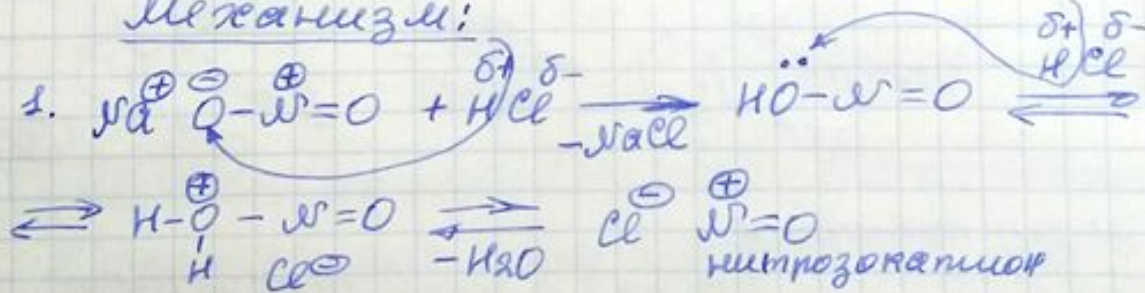 Механизм:
1. Na⊕ O⊖–N⊕=O + Hδ+ Clδ– → –NaCl HÖ–N=O Hδ+ Clδ– ⇌
⇌ H–O⊕–N=O ⇌ –H2O Cl⊖ N⊕=O
H Cl⊖ нитрозокатион